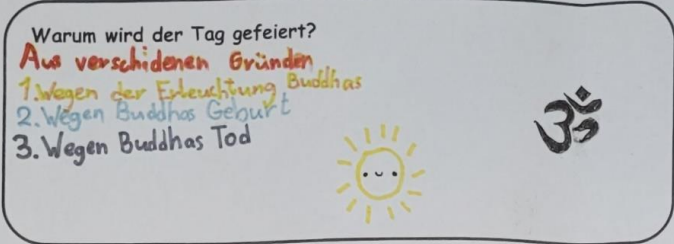 Warum wird der Tag gefeiert?
Aus verschidenen Gründen
1. Wegen der Erleuchtung Buddhas
2. Wegen Buddhas Geburt
3. Wegen Buddhas Tod
ॐ